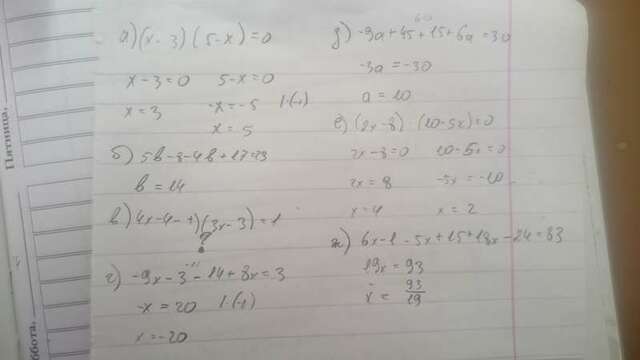 Пятница,
ббота,
а) (x-3)(5-x)=0
x-3=0 5-x=0
x=3 -x=-5 |·(-1)
x=5
б) 5b-3-4b+17=23
b=14
в) 4x-4- (3x-3)=1
?
г) -9x-3-14+8x=3
-x=20 |·(-1)
x=-20
60
д) -9a+45+15+6a=30
-3a=-30
a=10
е) (2x-8)·(10-5x)=0
2x-8=0 10-5x=0
2x=8 -5x=-10
x=4 x=2
ж) 6x-1-5x+15+18x-24=83
19x=93
x=93/19